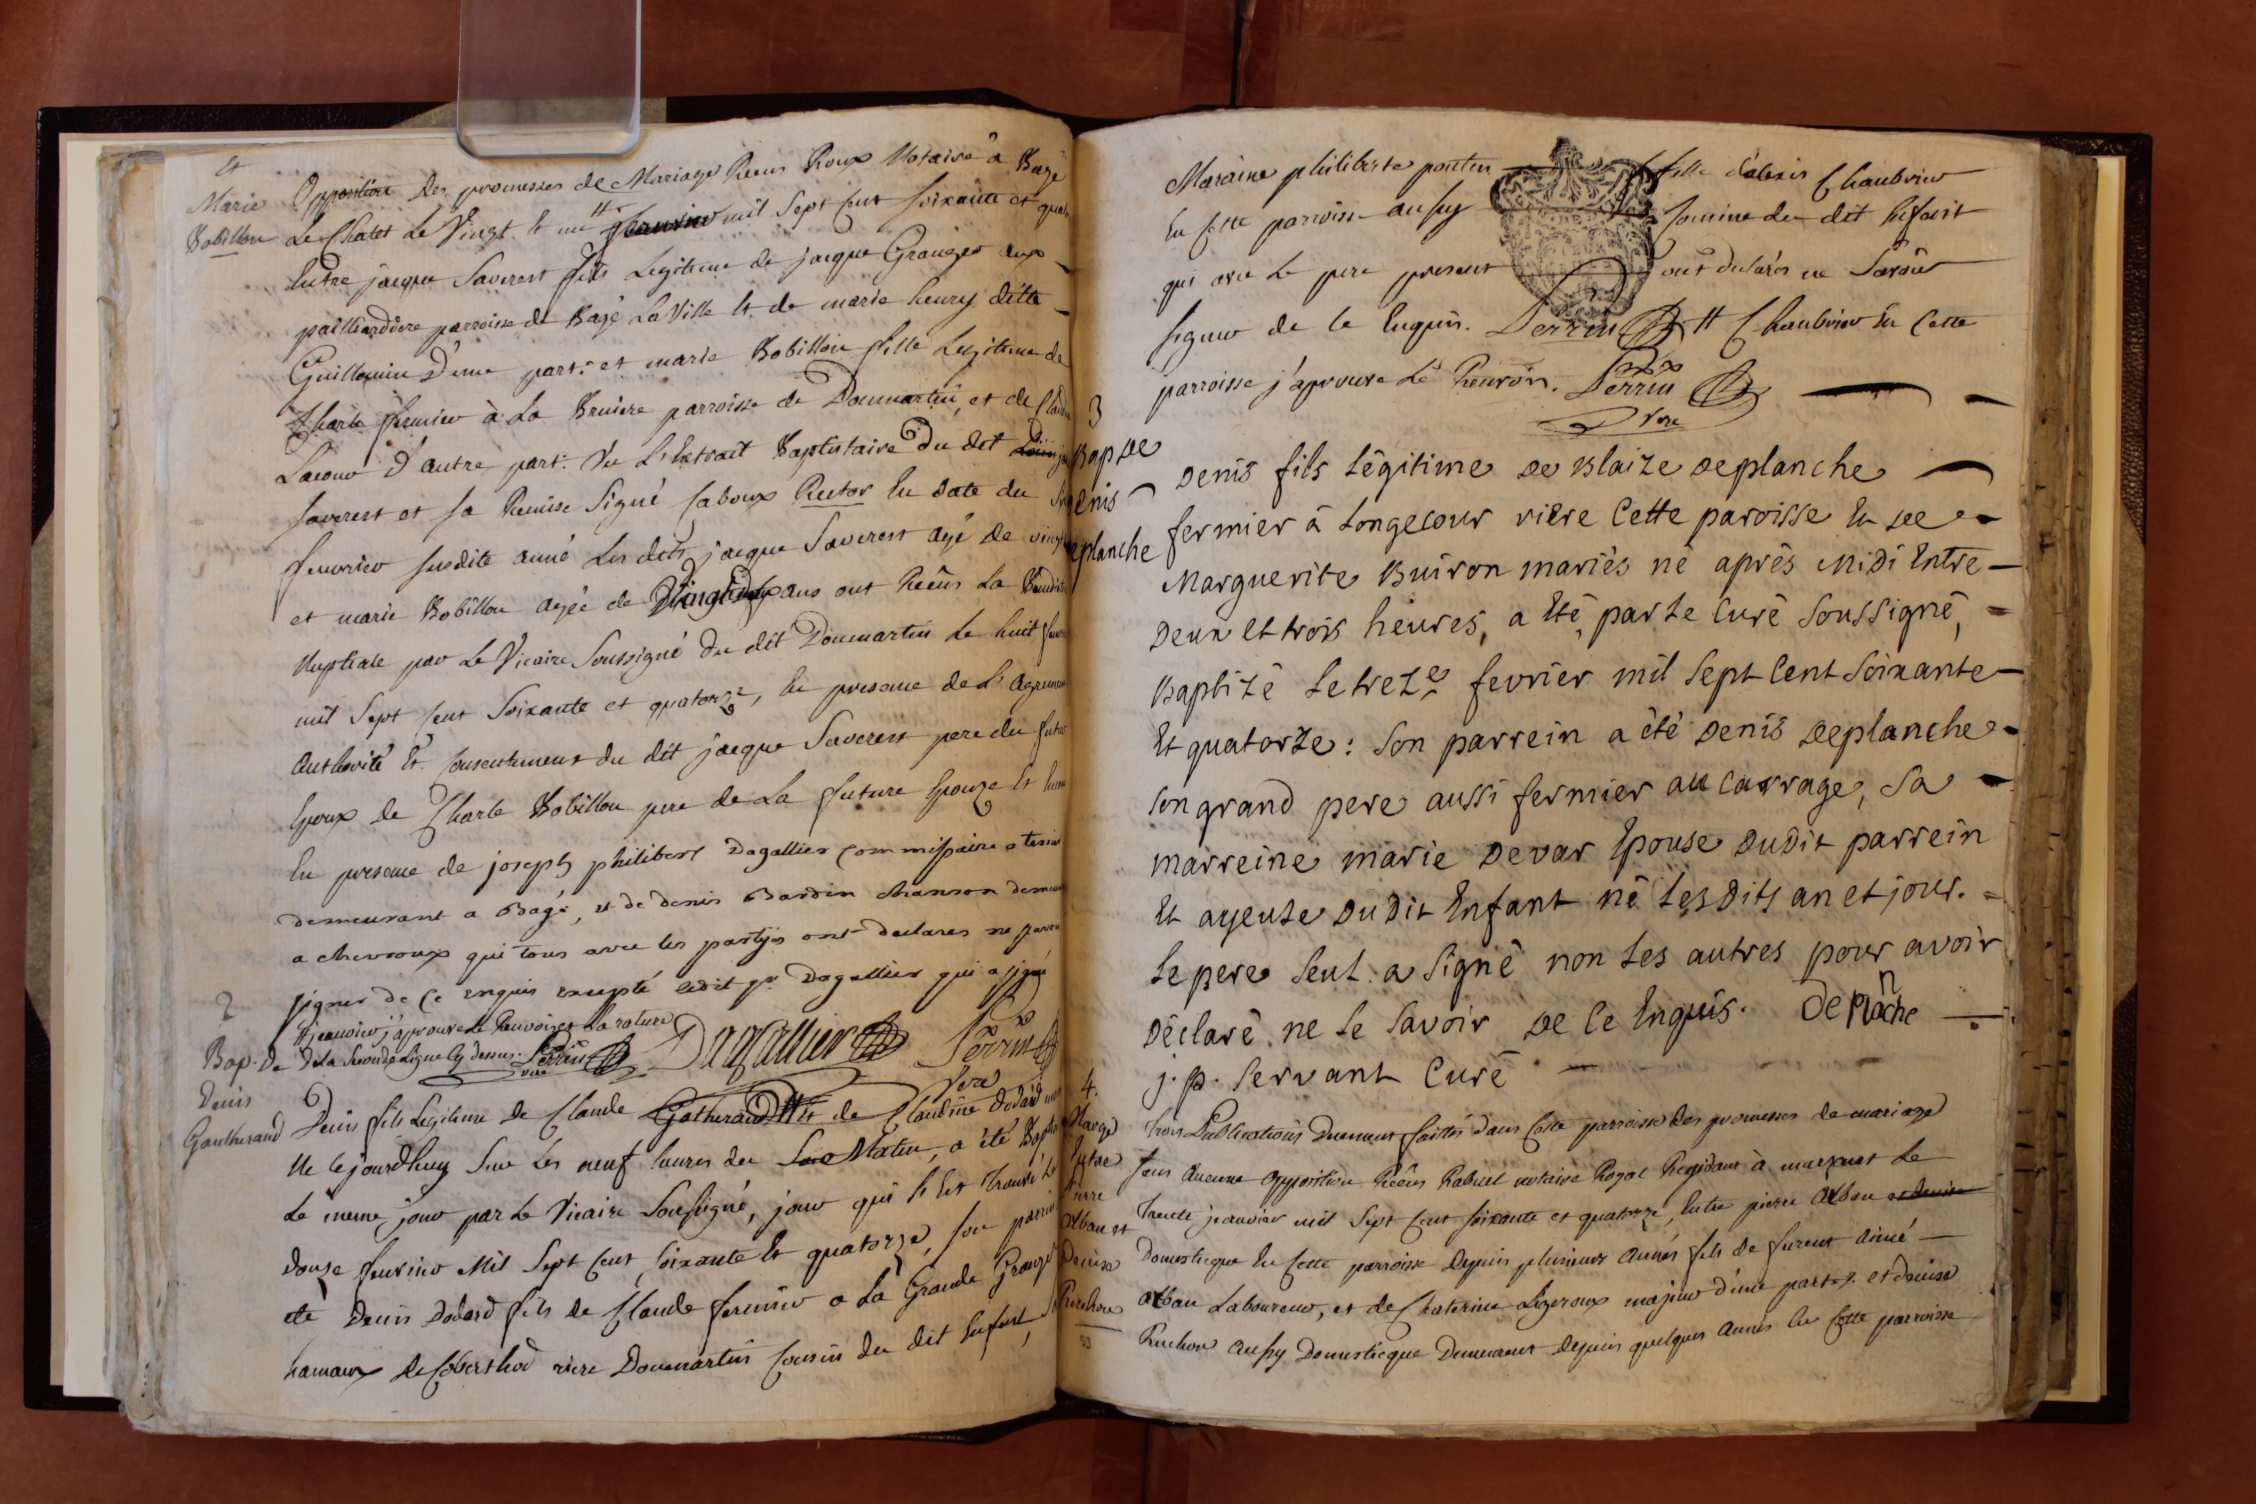 et
Marie
Bobillon
Opposition des promesses de Mariage Reçus Roux Notaire à Bagé
Le Chatel Le Vingt et un # mil Sept Cent Soixante et quat
Entre jacque Saverest fils Legitime de jacque Granger aux
pailliardiere parroisse de Bagé La Ville et de marie henry ditte
Guillemin D'une part: et marie Bobillon fille Legitime de
Charle fermier à La Bruiere parroisse de Dommartin, et de Claud
Lacour d'autre part: Vu L'Extrait Baptistaire Du dit
Saverest et sa Remise Signé Rector En date du
fevrier susdite anné Les dits jacque Saverest agé de vingt
et marie Bobillon agée de Vingt ans ont Reçus La Benedi
Nuptiale par Le Vicaire Soussigné du dit Dommartin Le huit fev
mil Sept Cent Soixante et quatorze, En presence de L'agrement
Authorité et Consentement du dit jacque Saverest pere du futur
Epoux de Charle Bobillon pere de La future Epouze et
En presence de joseph philibert Dagallier Commissaire a terrier
demeurant a Bagé, et de denis Bardin chanson demeur
a chevroux qui tous avec les partyes ont declares ne
signer de Ce enquis excepté ledit Sr Dagallier qui a signé
# jeanvier j'aprouve Le Renvoi et La rature
de La Seconde Ligne Cy dessus. Perrin vire Dagallier Perrin
Vire
2
Bap. De
Denis
Gautherand
Denis fils Legitime De Claude Gatherand # et de Claudine Dodard
Né Cejourdhuy Sur Les neuf heures du Matin, a été Baptis
Le meme jour par Le Vicaire Soussigné, jour qui s'Est trouvé Le
Douze fevrier Mil Sept Cent Soixante Et quatorze, son parrein
été Denis Dodard fils de Claude fermier a La Grande Grange
hamaux de Coberthod riere Dommartin Cousin du dit Enfant, Sa
Maraine philiberte fille d'alexis Chanbrier
En Cette parroisse aussy Cousine du dit Enfant
qui avec Le pere present ont declarés ne Savoir
signer de Ce Enquis. Perrin # Chanbrier En Cette
parroisse j'aprouve Le Renvoi. Perrin
Vire
3
Bap de
Denis
eplanche
Denis fils Légitime de Blaize Deplanche
fermier à Longecour riere Cette paroisse Et De
Marguerite Buiron mariés né après Midi Entre
Deux Et trois heures, a Eté par Le Curé Soussigné,
Baptizé Le treze fevrier mil Sept Cent Soixante
Et quatorze: Son parrein a été Denis Deplanche
Son grand pere aussi fermier au Carrage, Sa
marreine marie Devar Epouse Dudit parrein
Et ayeule Dudit Enfant né Lesdits an et jour.
Le pere Seul a Signé non Les autres pour avoir
Déclaré ne Le Savoir De Ce Enquis. Deplanche
j. p. Servant Curé
4.
Marge
Entre
Pierre
Alban et
Denise
Ruchon
53
trois Publications Duement faittes dans Cette parroisse Des promesses de mariage
sans aucune Opposition Reçus Rabuel notaire Royal Residant à Le
trente jeanvier mil Sept Cent soixante et quatorze, Entre pierre Alban et denise
Domesticque En Cette parroisse Depuis plusieurs années fils de furent aimé
Alban Laboureur, et de Chaterine Ligeroux majeur d'une part. et denise
Ruchon aussy Domesticque Demeurant depuis quelques années En Cette parroisse